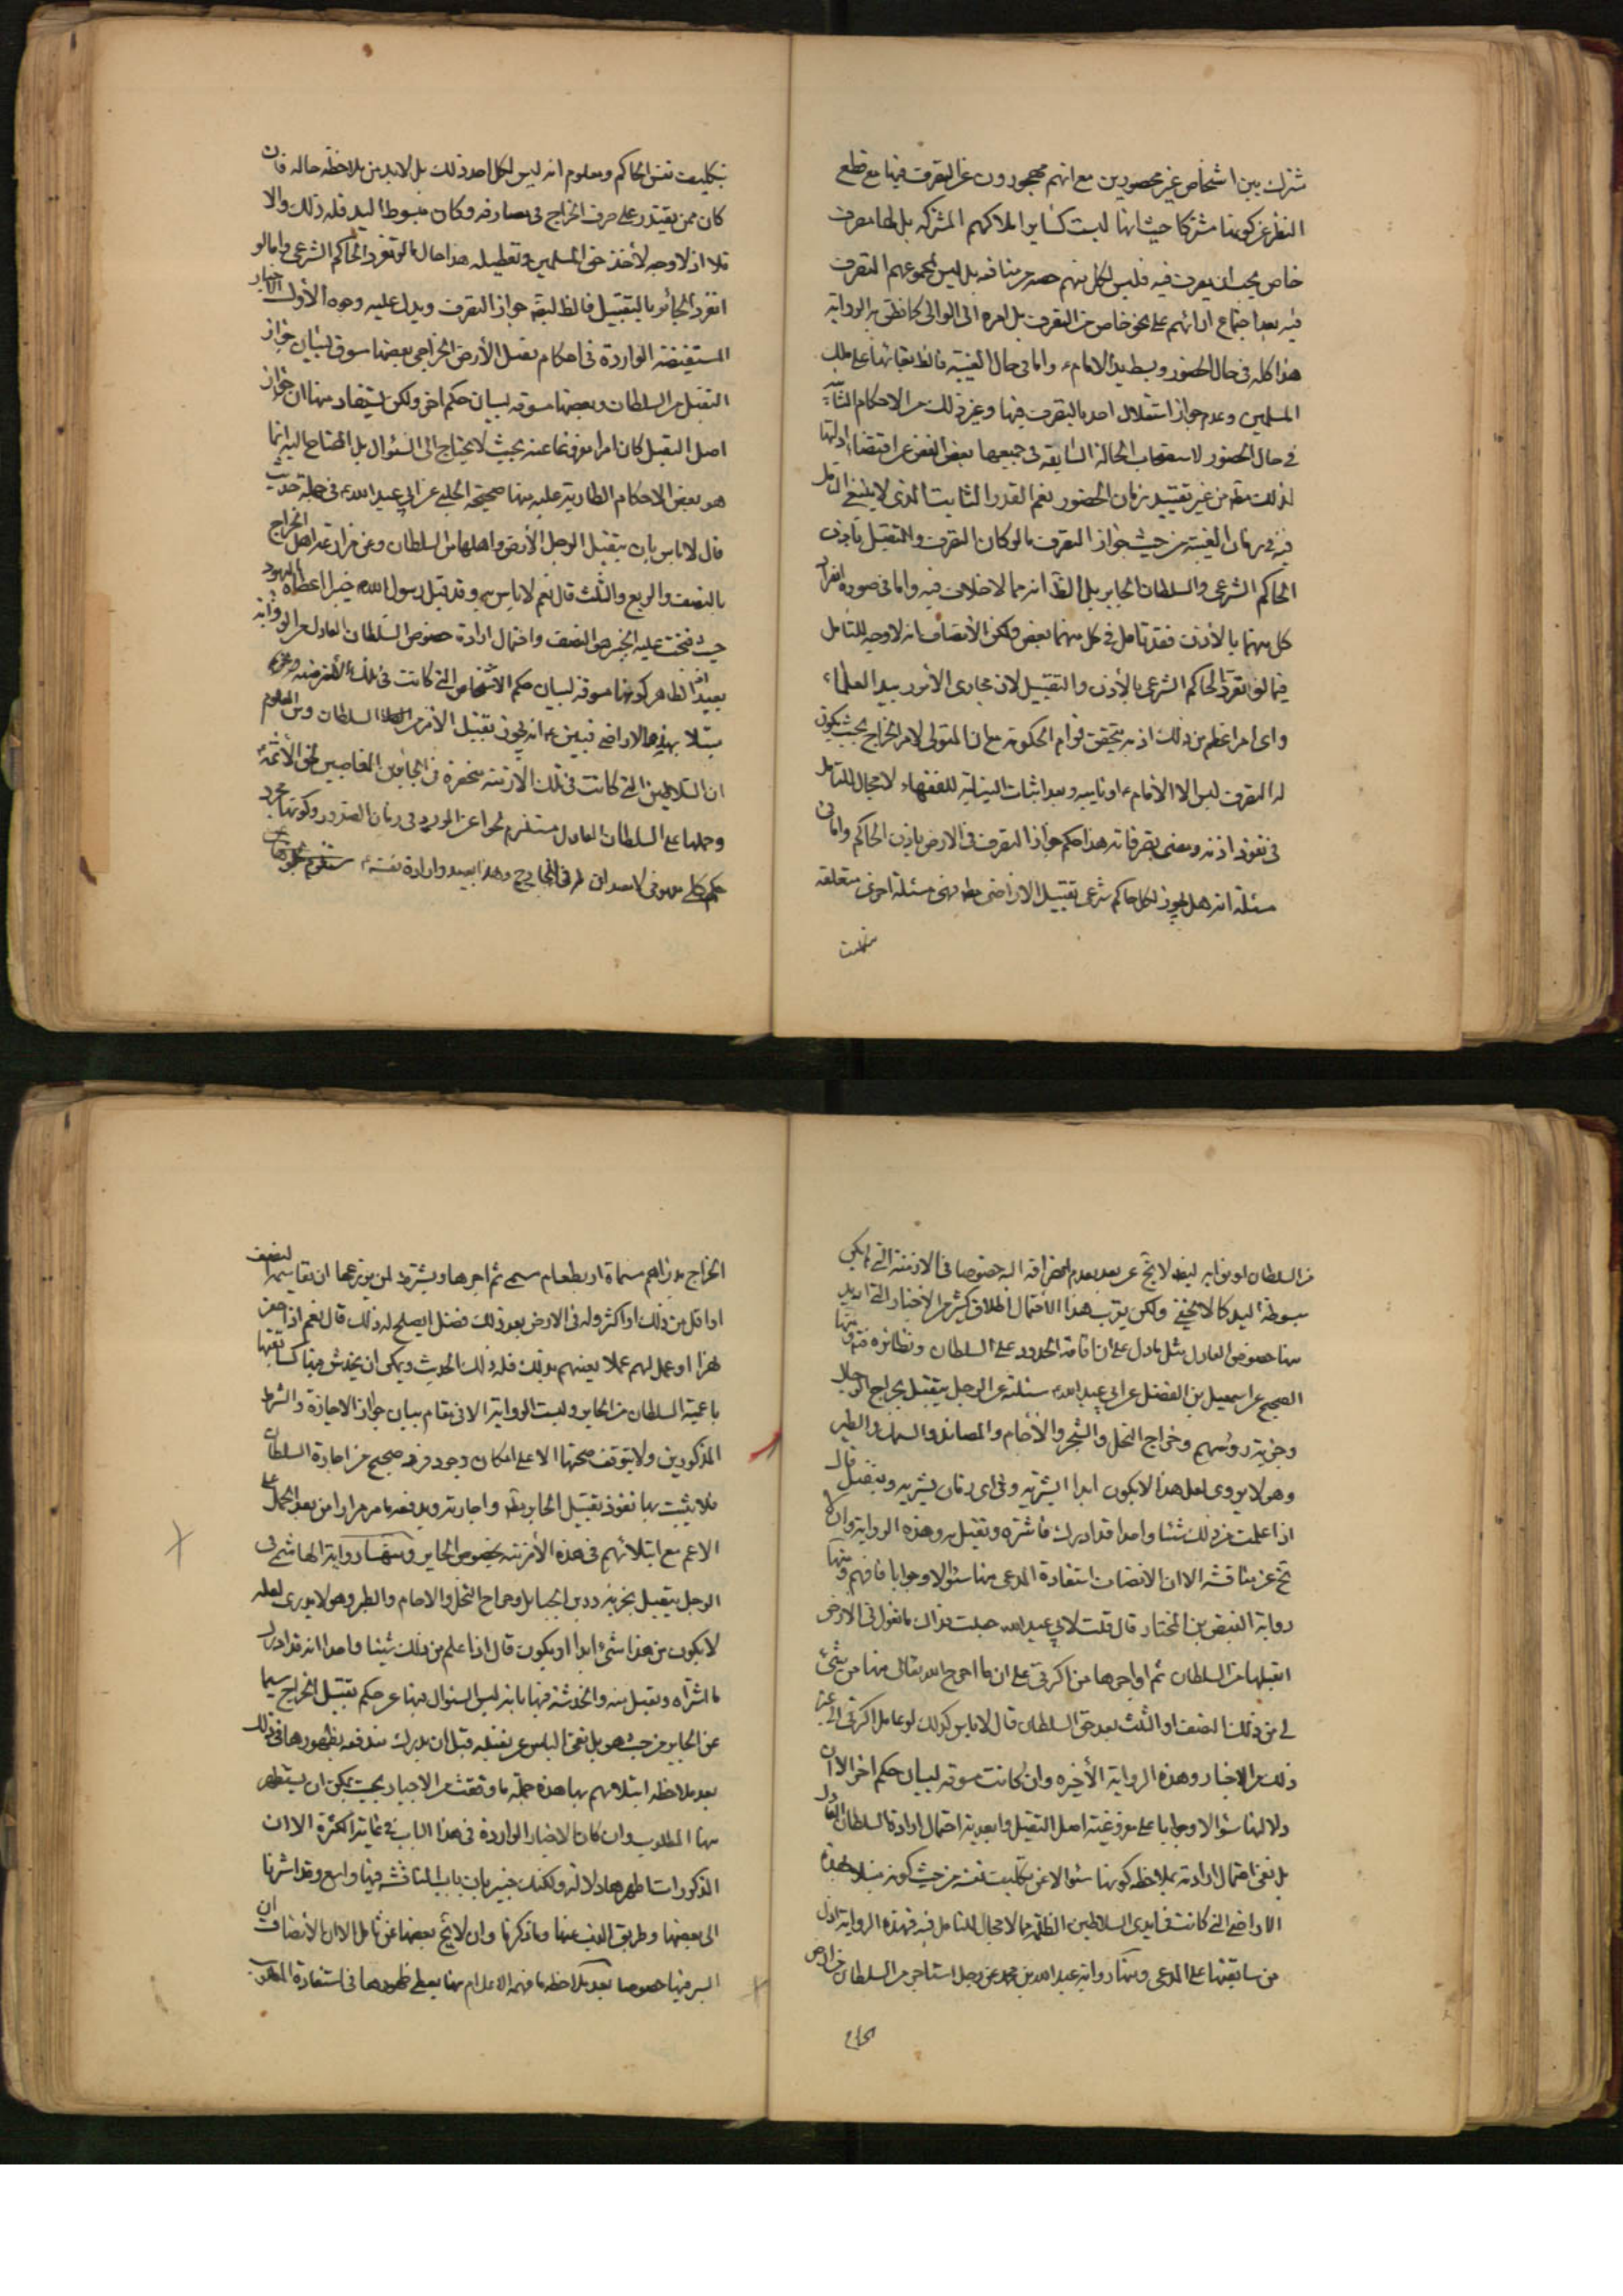 شترك بين اشخاص غير محصورين مع انهم محجورون عن التصرف فيها مع قطع
النظر عن كونها مشتركا حيث انها ليست كساير املاكهم المشتركه بل لها مصرف
خاص يجب ان يصرف فيه فليس لكل منهم حصه من منافعه بل ليس لمجموعهم التصرف
فيه بعد اجتماع ارائهم على نحو خاص من التصرف بل امره الى الوالى كما نطق به الرواية
هذا كله فى حال الحضور وبسط يد الامام ع واما فى حال الغيبة فالظ بقائها على ملك
المسلمين وعدم جواز استقلال احد بالتصرف فيها وغير ذلك من الاحكام الثابتة
فى حال الحضور لاستصحاب الحالة السابقه فى جميعها بعض الغض عن اقتضاء ادلتها
لذلك مط من غير تقييد بزمان الحضور نعم القدر الثابت الذى لا ينبغى التامل
فيه فى زمان الغيبة من حيث جواز التصرف ما لو كان التصرف والتقبل باذن
الحاكم الشرعى والسلطان الجاير بل الظ انه مما لا خلاف فيه واما فى صورة انفراد
كل منهما بالأذن فقد تامل فى كل منهما بعض ولكن الأنصاف انه لا وجه للتامل
فيما لو تفرد الحاكم الشرعى بالأذن والتقبيل لان مجارى الأمور بيد العلماء
واى امر اعظم من ذلك اذ به يتحقق قوام الحكومة مع ان المتولى لامر الخراج بحيث يكون
له التصرف ليس الا الأمام ع او نايبه وبعد اثبات النيابة للفقهاء لا مجال للتامل
فى نفوذ اذنه ومضى تصرفاته هذا حكم جواز التصرف فى الارض باذن الحاكم واما فى
مسئلة انه هل يجوز لكل حاكم شرعى تقبيل الاراضى مط فهى مسئلة اخرى متعلقه
بتكليف
بتكليف نفس الحاكم ومعلوم انه ليس لكل احد ذلك بل لابد من ملاحظة حاله فان
كان ممن يقتدر على صرف الخراج فى مصارفه وكان مبسوط اليد فله ذلك والا
فلا اذ لا وجه لأخذ حق المسلمين وتعطيله هذا حال ما لو تفرد الحاكم الشرعى واما لو
انفرد الجائر بالتقبيل فالظ البتة جواز التصرف ويدل عليه وجوه الأول الاخبار
المستفيضة الواردة فى احكام تقبل الأرض الخراجى بعضها مسوق لبيان جواز
التقبل من السلطان وبعضها مسوقه لبيان حكم اخر ولكن يستفاد منها ان جواز
اصل التقبل كان امرا مفروغا عنه بحيث لا يحتاج الى السئوال بل المحتاج اليه انما
هو بعض الاحكام الطارية عليه منها صحيحة الحلبى عن ابى عبد الله ع فى جملة حديث
قال لا باس بان يتقبل الرجل الأرض واهلها من السلطان وعن مزارعة اهل الخراج
بالنصف والربع والثلث قال نعم لا باس به وقد قبل رسول الله ص خيبر اعطاها اليهود
حيث فتحت عليه الخبر هى النصف واحتمال ارادة خصوص السلطان العادل من الرواية
بعيد اذ الظاهر كونها مسوقه لبيان حكم الاشخاص التى كانت فى تلك الأزمنة
مبتلا بهذه الاراضى فبين ع انه يجوز تقبل الارض من السلطان ومن المعلوم
ان السلاطين التى كانت فى تلك الازمنة منحصرة فى الجايرين الغاصبين لحق الأئمة
وحملها على السلطان العادل مستلزم لخروجها عن المورد فى زمان الصدور وكونها مجرد
حكم كلى
من السلطان او نوابه ليضا لا يخ عن بعد بعدم انصرافه اليه خصوصا فى الازمنة التى لم يكن
مبسوطة اليد كما لا يخفى ولكن يقرب هذا الاحتمال اطلاق كثير من الأخبار التى اريد
منها خصوص العادل مثل ما دل على ان اقامة الحدود على السلطان ونظائره ومنها
الصحيح عن اسمعيل بن الفضل عن ابى عبد الله ع سئلته عن الرجل يتقبل بخراج الرجال
وجزية رؤسهم وخراج النخل والشجر والأجام والمصائد والسمك والطير
وهو لا يدرى لعل هذا لا يكون ابدا ايشتريه وفى اى زمان يشتريه ويتقبل قال
اذا علمت من ذلك شيئا واحدا قد ادرك فاشتره وتقبل به وهذه الرواية وان لم
تخ عن مناقشة الا ان الانصاف استفادة المدعى منها سئوالا وجوابا فافهم ومنها
رواية الفيض بن المختار قال قلت لابى عبد الله جعلت فداك ما تقول فى الارض
اتقبلها من السلطان ثم اواجرها من اكرتى على ان ما اخرج الله تعالى منها من شئ
لى من ذلك النصف او الثلث بعد حق السلطان قال لا باس كذلك اعامل اكرتى الى غير
ذلك من الاخبار وهذه الرواية الأخيره وان كانت مسوقه لبيان حكم اخر الا ان
دلالتها سئوالا وجوابا على مفروغية اصل التقبل وابعدية احتمال ارادة السلطان العادل
بل نفى احتمال ارادته بملاحظة كونها سئوالا عن تكليف نفسه من حيث كونه مبتلا بهذه
الاراضى التى كانت فى ايدى السلاطين الظلمة مما لا مجال للتامل فيه فهذه الرواية ادل
من سابقتها على المدعى ومنها رواية عبد الله بن محمد عن رجل استاجر من السلطان من ارض
الخراج
الخراج بدراهم مسماة او بطعام مسمى ثم اجرها ويشترط لمن يزرعها ان يقاسمها النصف
او اقل من ذلك او اكثر وله فى الارض بعد ذلك فضل ايصلح له ذلك قال نعم اذا حفر
نهرا او عمل لهم عملا يعينهم بذلك فله ذلك الحديث ويمكن ان يخدش فيها كسابقتها
باعمية السلطان من الجاير وليست الرواية الا فى مقام بيان جواز الاجارة والشرط
المذكورين ولا يتوقف صحتها الا على امكان وجود فرد صحيح من اجارة السلطان
فلا يثبت بها نفوذ تقبيل الجاير مط واجارته ويدفعه ما مر مرارا من بعد الحمل على
الاعم مع ابتلائهم فى هذه الأزمنة بخصوص الجاير ومنها رواية الهاشمى فى
الرجل يتقبل بجزية رؤس الجبال وخراج النخل والاجام والطير وهو لا يدرى لعله
لا يكون من هذا شئ ابدا او يكون قال اذا علم من ذلك شيئا واحدا انه قد ادرك
فاشتراه وتقبل منه والخدشة فيها بانه ليس السئوال فيها عن حكم تقبيل الخراج سيما
عن الجاير من حيث هو بل نفى الباس عن تقبله قبل ان يدرك مندفعه بظهورها فى ذلك
بعد ملاحظة ابتلائهم بها هذه جملة ما وقفت من الاخبار بحيث يمكن ان يستظهر
منها المطلوب وان كان الاخبار الواردة فى هذا الباب فى غاية الكثرة الا ان
المذكورات اظهرها دلالة ولكنك خبير بان باب المناقشه فيها واسع وقد اشرنا
الى بعضها وطريق الذب عنها وما ذكرنا وان لا يخ بعضها عن تامل الا ان الأنصاف ان
السبر فيها خصوصا بعد ملاحظة ما فهمه الاعلام منها يعطى ظهورها فى استفادة المدعى